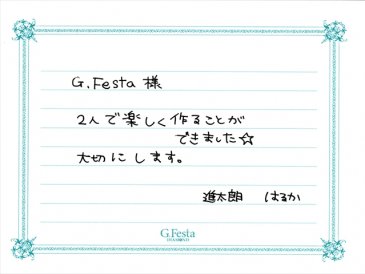 G.Festa 様
2人で楽しく作ることが
できました☆
大切にします。
進太朗 はるか
G.Festa
DIAMONDS